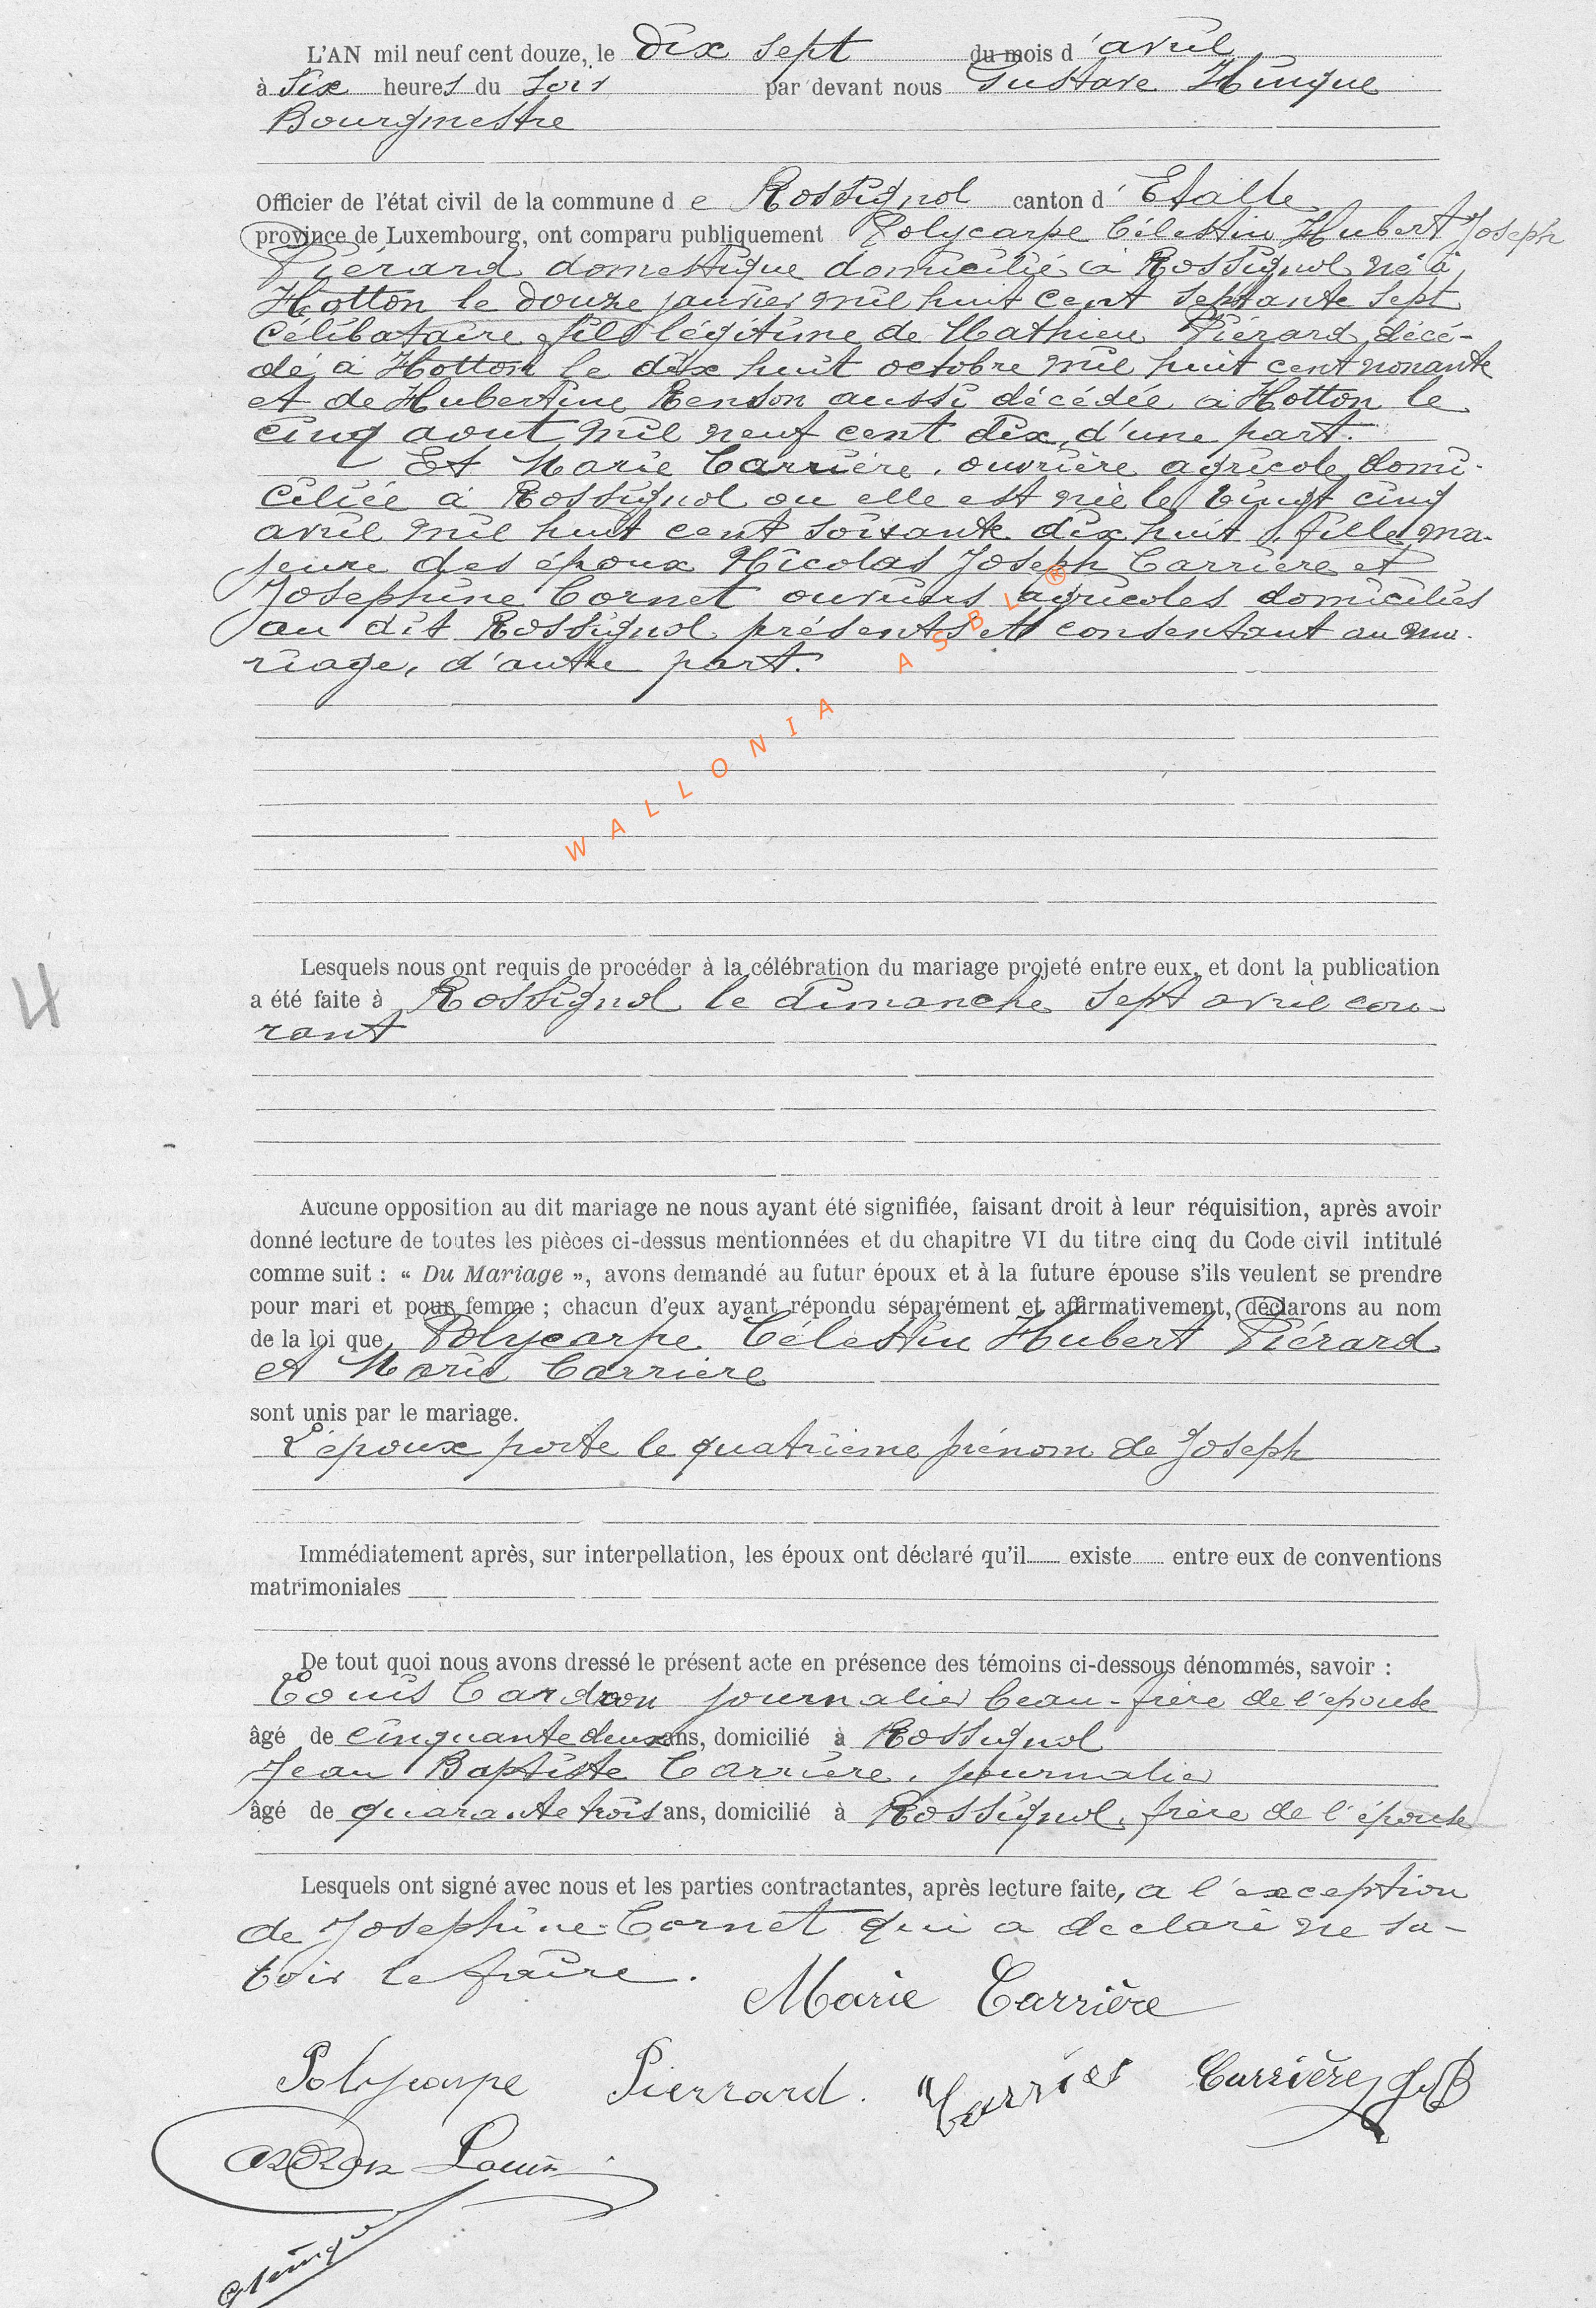 L'AN mil neuf cent douze, le dix sept du mois d'avril
à six heures du soir par devant nous Gustave Hinque
Bourgmestre
Officier de l'état civil de la commune de Rossignol canton d'Etalle
province de Luxembourg, ont comparu publiquement Polycarpe Célestin Hubert Joseph
Piérard domestique domicilié à Rossignol né à
Hotton le douze janvier mil huit cent septante sept
célibataire fils légitime de Mathieu Piérard décé-
dé à Hotton le dix huit octobre mil huit cent nonante
et de Hubertine Renson aussi décédée à Hotton le
cinq aout mil neuf cent dix, d'une part.
Et Marie Carrière, ouvrière agricole domi-
ciliée à Rossignol ou elle est née le vingt cinq
avril mil huit cent soixante dix huit, fille ma-
jeure des époux Nicolas Joseph Carrière et
Josephine Cornet ouvriers agricoles domiciliés
au dit Rossignol présents et consentant au ma-
riage, d'autre part.
WALLONIA ASBL ®
4
Lesquels nous ont requis de procéder à la célébration du mariage projeté entre eux, et dont la publication
a été faite à Rossignol le dimanche sept avril cou-
rant
Aucune opposition au dit mariage ne nous ayant été signifiée, faisant droit à leur réquisition, après avoir
donné lecture de toutes les pièces ci-dessus mentionnées et du chapitre VI du titre cinq du Code civil intitulé
comme suit : « Du Mariage », avons demandé au futur époux et à la future épouse s'ils veulent se prendre
pour mari et pour femme ; chacun d'eux ayant répondu séparément et affirmativement, déclarons au nom
de la loi que Polycarpe Célestin Hubert Piérard
et Marie Carrière
sont unis par le mariage.
L'époux porte le quatrième prénom de Joseph
Immédiatement après, sur interpellation, les époux ont déclaré qu'il existe entre eux de conventions
matrimoniales
De tout quoi nous avons dressé le présent acte en présence des témoins ci-dessous dénommés, savoir :
Louis Cardron journalier beau-frère de l'épouse
âgé de cinquante deux ans, domicilié à Rossignol
Jean Baptiste Carrière, journalier
âgé de quarante trois ans, domicilié à Rossignol, frère de l'épouse
Lesquels ont signé avec nous et les parties contractantes, après lecture faite, a l'exception
de Josephine Cornet qui a declaré ne sa-
voir le faire.
Marie Carrière
Polycarpe Pierrard. Carrier Carrière J B
Cardron Louis